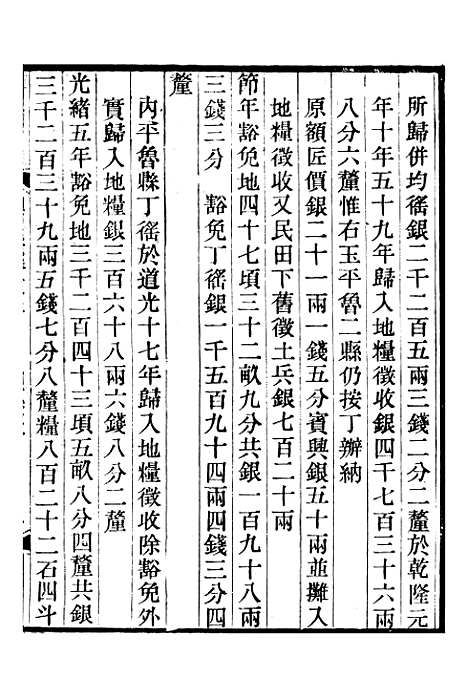 所歸併均徭銀二千二百五兩三錢二分二釐於乾隆元
年十年五十九年歸入地糧徵收銀四千七百三十六兩
八分六釐惟右玉平魯二縣仍按丁辦納
原額匠價銀二十一兩一錢五分賓興銀五十兩並攤入
地糧徵收又民田下舊徵土兵銀七百二十兩
節年豁免地四十七頃三十二畝九分共銀一百九十八兩
三錢三分　豁免丁徭銀一千五百九十四兩四錢三分四
釐
内平魯縣丁徭於道光十七年歸入地糧徵收除豁免外
實歸入地糧銀三百六十八兩六錢八分二釐
光緒五年豁免地三千二百四十三頃五畝八分四釐共銀
三千二百三十九兩五錢七分八釐糧八百二十二石四斗